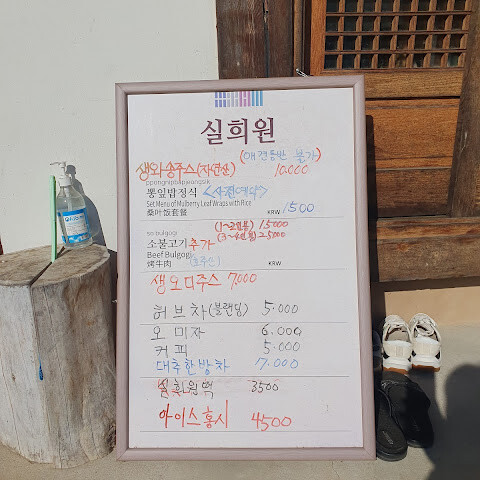 실희원
생와송주스(자연산) 10.000
(애견동반 불가)
ppongnipbapjeongsik
뽕잎밥정식 <사전예약>
Set Menu of Mulberry Leaf Wraps with Rice
桑叶饭套餐 KRW 1500
so bulgogi (1~2인분) 15000
소불고기 추가 (3~4인분) 25000
Beef Bulgogi (호주산)
烤牛肉 KRW
생오디주스 7.000
허브차(블랜딩) 5.000
오미자 6.000
커피 5.000
대추한방차 7.000
실희원액 3500
아이스홍시 4500